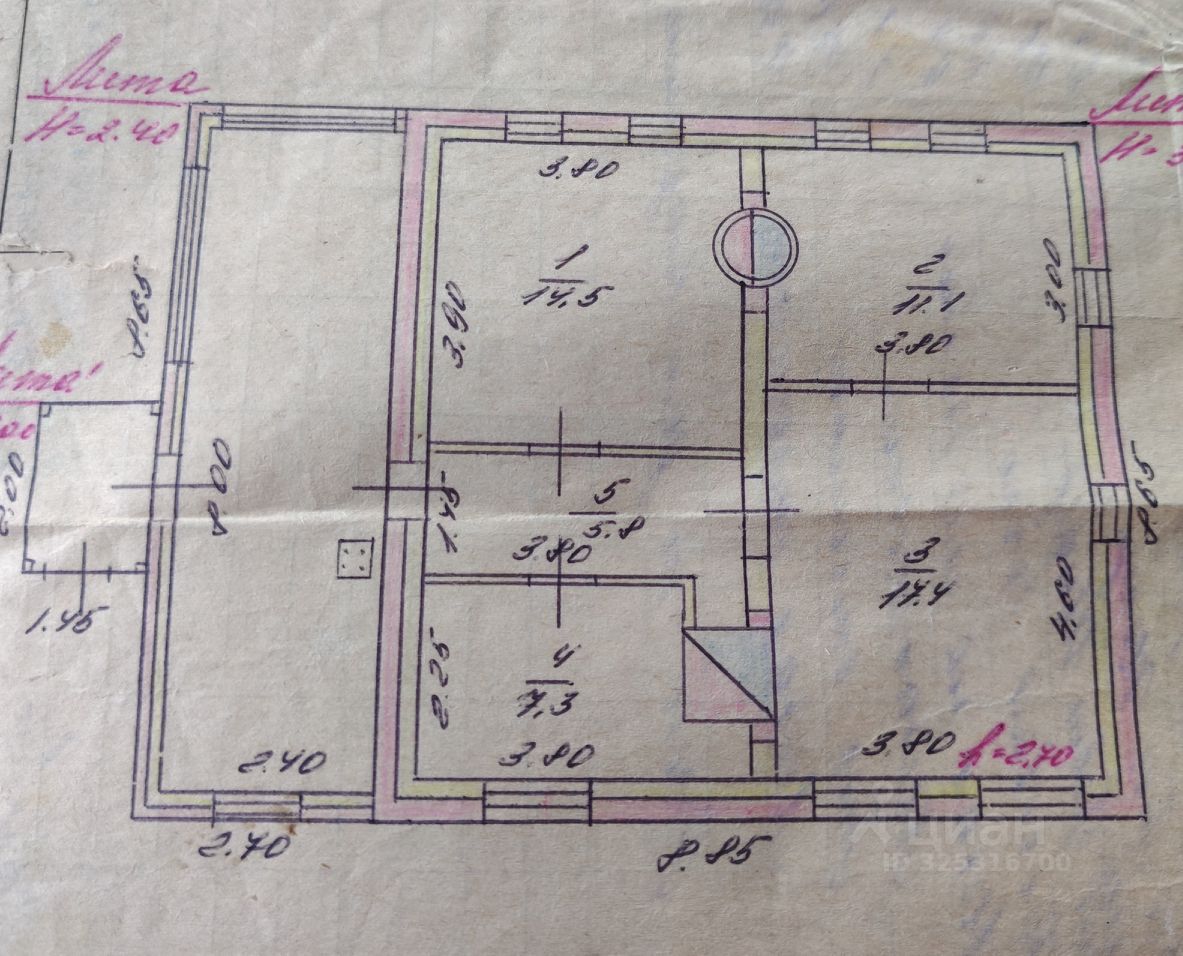 Лита
H=2.40
H=3
3.80
1
14.5
3.90
2
11.1
3.80
3.00
8.65
8.00
2.00
1.45
1.45
5
5.8
3.80
3
17.4
4.60
8.65
4
7.3
2.25
3.80
2.40
3.80
h=2.70
2.70
8.85
циан
ID 325316700